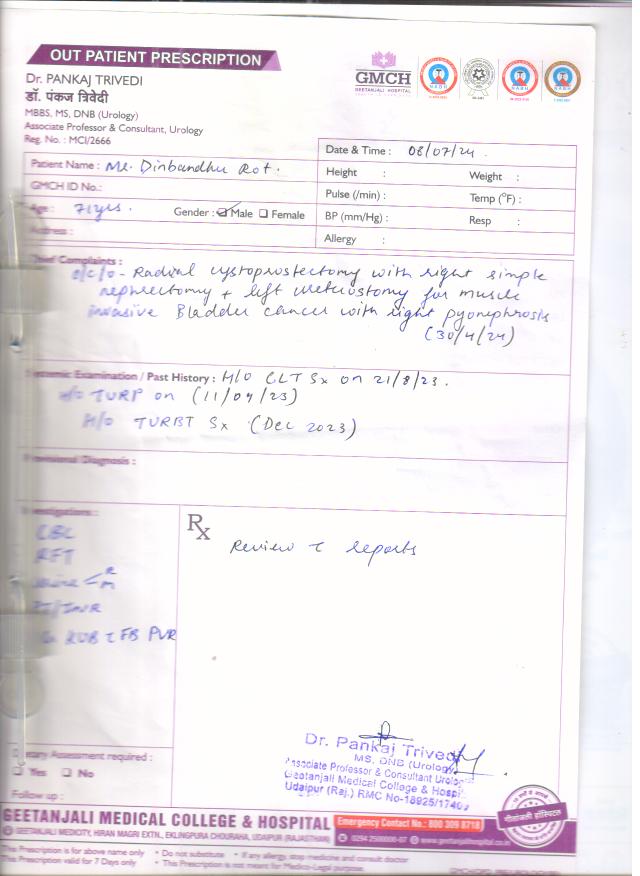 OUT PATIENT PRESCRIPTION
Dr. PANKAJ TRIVEDI
डॉ. पंकज त्रिवेदी
MBBS, MS, DNB (Urology)
Associate Professor & Consultant, Urology
Reg. No. : MCI/2666
GMCH
GEETANJALI HOSPITAL
NABH
NABH
NABH
Patient Name : Mr. Dinbandhu Rot.
GMCH ID No.:
Age : 71yrs. Gender : Male Female
Address :
Date & Time : 08/07/24.
Height : Weight :
Pulse (/min) : Temp (°F) :
BP (mm/Hg) : Resp :
Allergy :
Chief Complaints :
Radical cystoprostectomy with right simple
nephrectomy + left ureterostomy for muscle
invasive Bladder cancer with right pyonephrosis
(30/4/24)
Systemic Examination / Past History : H/O CLT Sx on 21/8/23.
H/O TURP on (11/04/23)
H/O TURBT Sx (Dec 2023)
Provisional Diagnosis :
Investigations :
CBC
RFT
Urine R
M
PT/INR
KUB c FB PVR
Rx
Review c reports
Dietary Assessment required :
Yes No
Follow up :
Dr. Pankaj Trivedi
MS, DNB (Urology)
Associate Professor & Consultant
Geetanjali Medical College &
Udaipur (Raj.) RMC No-18925/17409
GEETANJALI MEDICAL COLLEGE & HOSPITAL
Emergency Contact No.: 800 309 8718
GEETANJALI MEDICITY, HIRAN MAGRI EXTN., EKLINGPURA CHOURAHA, UDAIPUR (RAJASTHAN)
0294 2500000-07 www.geetanjalihospital.co.in
गीतांजली हॉस्पिटल
This Prescription is for above name only • Do not substitute • If any allergy, stop medicine and consult doctor
This Prescription valid for 7 Days only • This Prescription is not meant for Medico-Legal purpose.